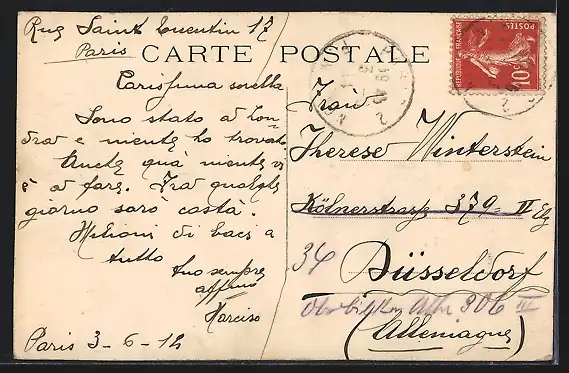 Rue Saint Quentin 17
Paris
CARTE POSTALE
Carissima sorella
Sono stato a Lon-
dra e niente ho trovato
Anche quà niente vi
è a fare. Fra qualche
giorno sarò costà.
Milioni di baci a
tutto
tuo sempre
affmo
Narciso
Paris 3-6-12
Frau
Therese Winterstein
Kölnerstrasse 379 II Etg
34
Düsseldorf
306 III
(Allemagne)
REPUBLIQUE FRANÇAISE
POSTES
10c